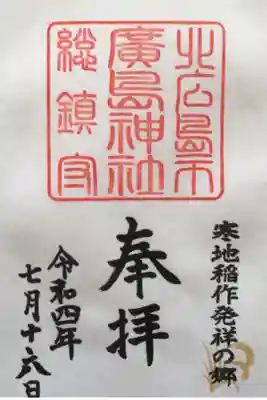 北広島市
廣島神社
総鎮守
寒地稲作発祥の郷
奉拝
令和四年
七月十六日